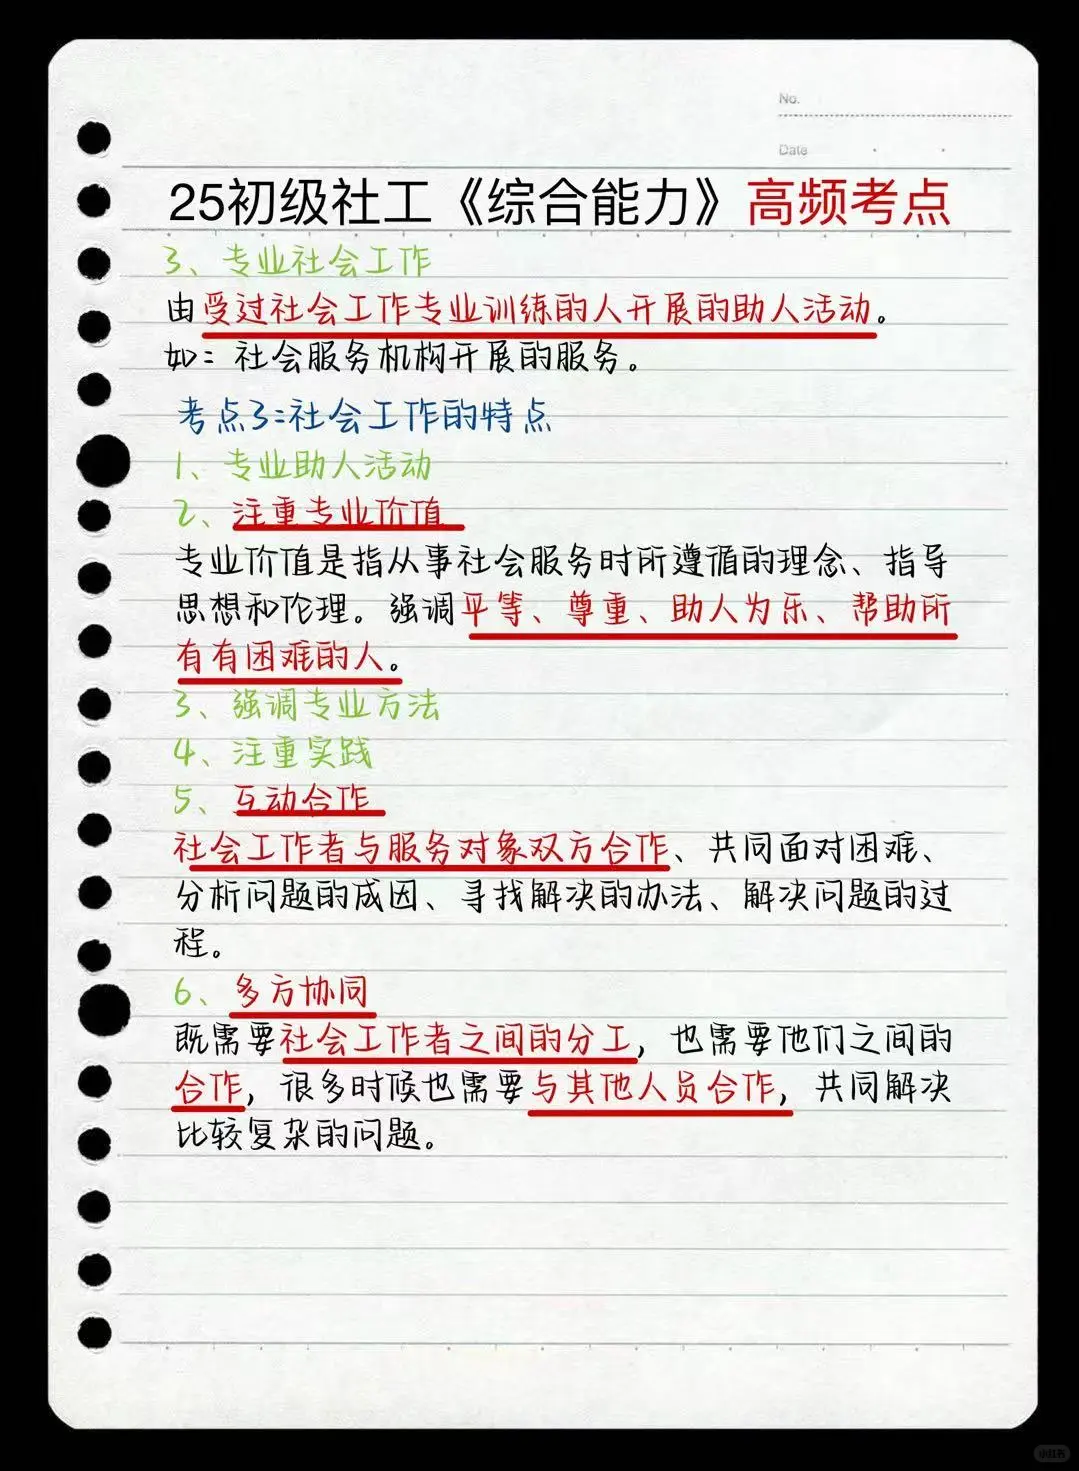 No.
Date
25初级社工《综合能力》高频考点
3、专业社会工作
由受过社会工作专业训练的人开展的助人活动。
如：社会服务机构开展的服务。
考点3：社会工作的特点
1、专业助人活动
2、注重专业价值
专业价值是指从事社会服务时所遵循的理念、指导
思想和伦理。强调平等、尊重、助人为乐、帮助所
有有困难的人。
3、强调专业方法
4、注重实践
5、互动合作
社会工作者与服务对象双方合作、共同面对困难、
分析问题的成因、寻找解决的办法、解决问题的过
程。
6、多方协同
既需要社会工作者之间的分工，也需要他们之间的
合作，很多时候也需要与其他人员合作，共同解决
比较复杂的问题。
小红书